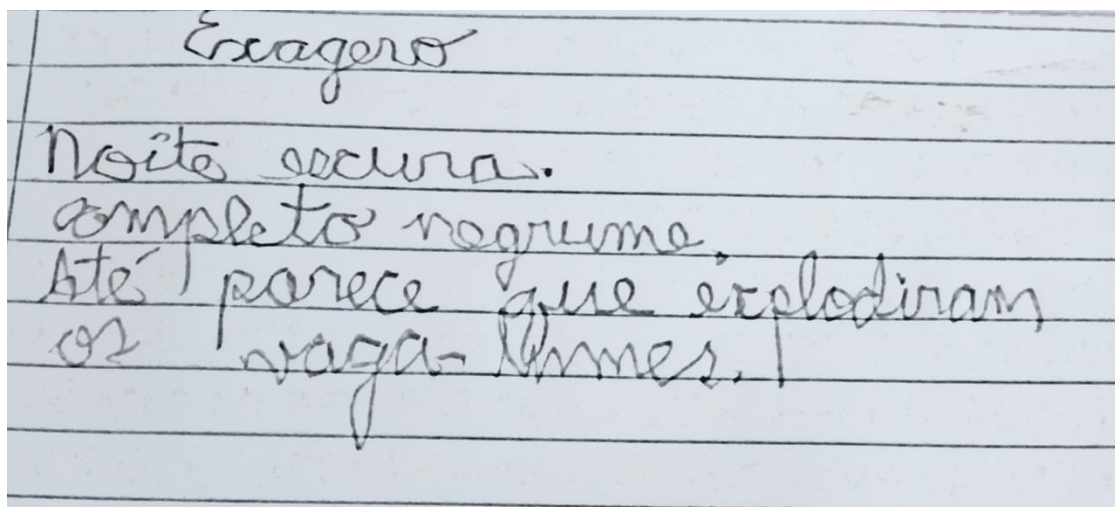 Exagero
Noite escura.
completo negrume.
Até parece que explodiram
os vaga-lumes.